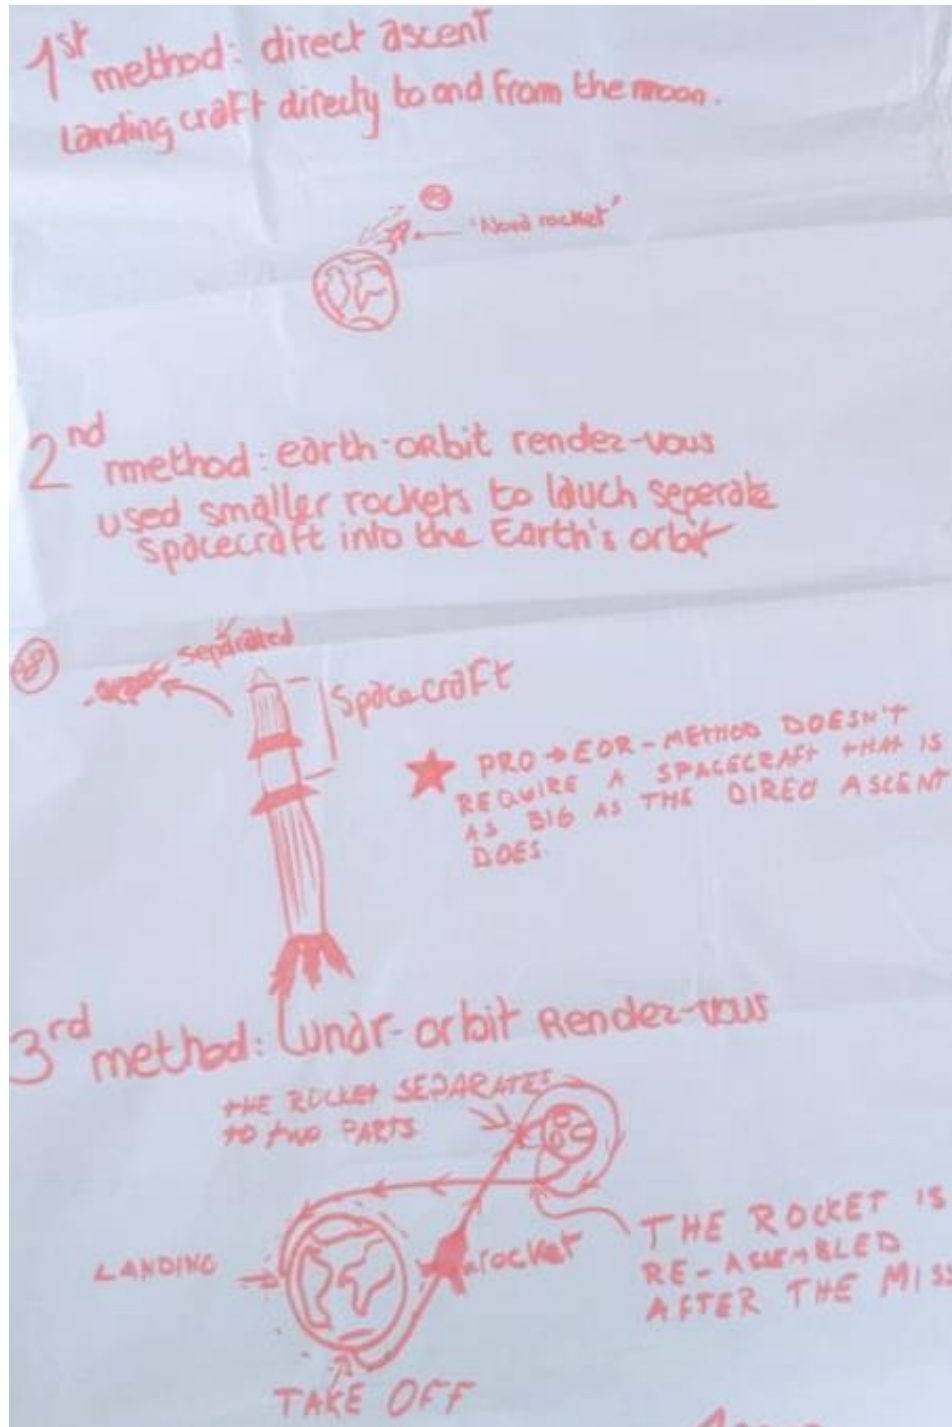 1st method: direct ascent
Landing craft directly to and from the moon.
"Nova rocket"
2nd method: earth-orbit rendez-vous
used smaller rockets to lauch seperate
spacecraft into the Earth's orbit
separated
Spacecraft
PRO → EOR-METHOD DOESN'T
REQUIRE A SPACECRAFT THAT IS
AS BIG AS THE DIREC ASCENT
DOES.
3rd method: Lunar-orbit Rendez-vous
THE ROCKET SEPARATES
TO TWO PARTS
LANDING
rocket
THE ROCKET IS
RE-ASSEMBLED
AFTER THE MISS
TAKE OFF